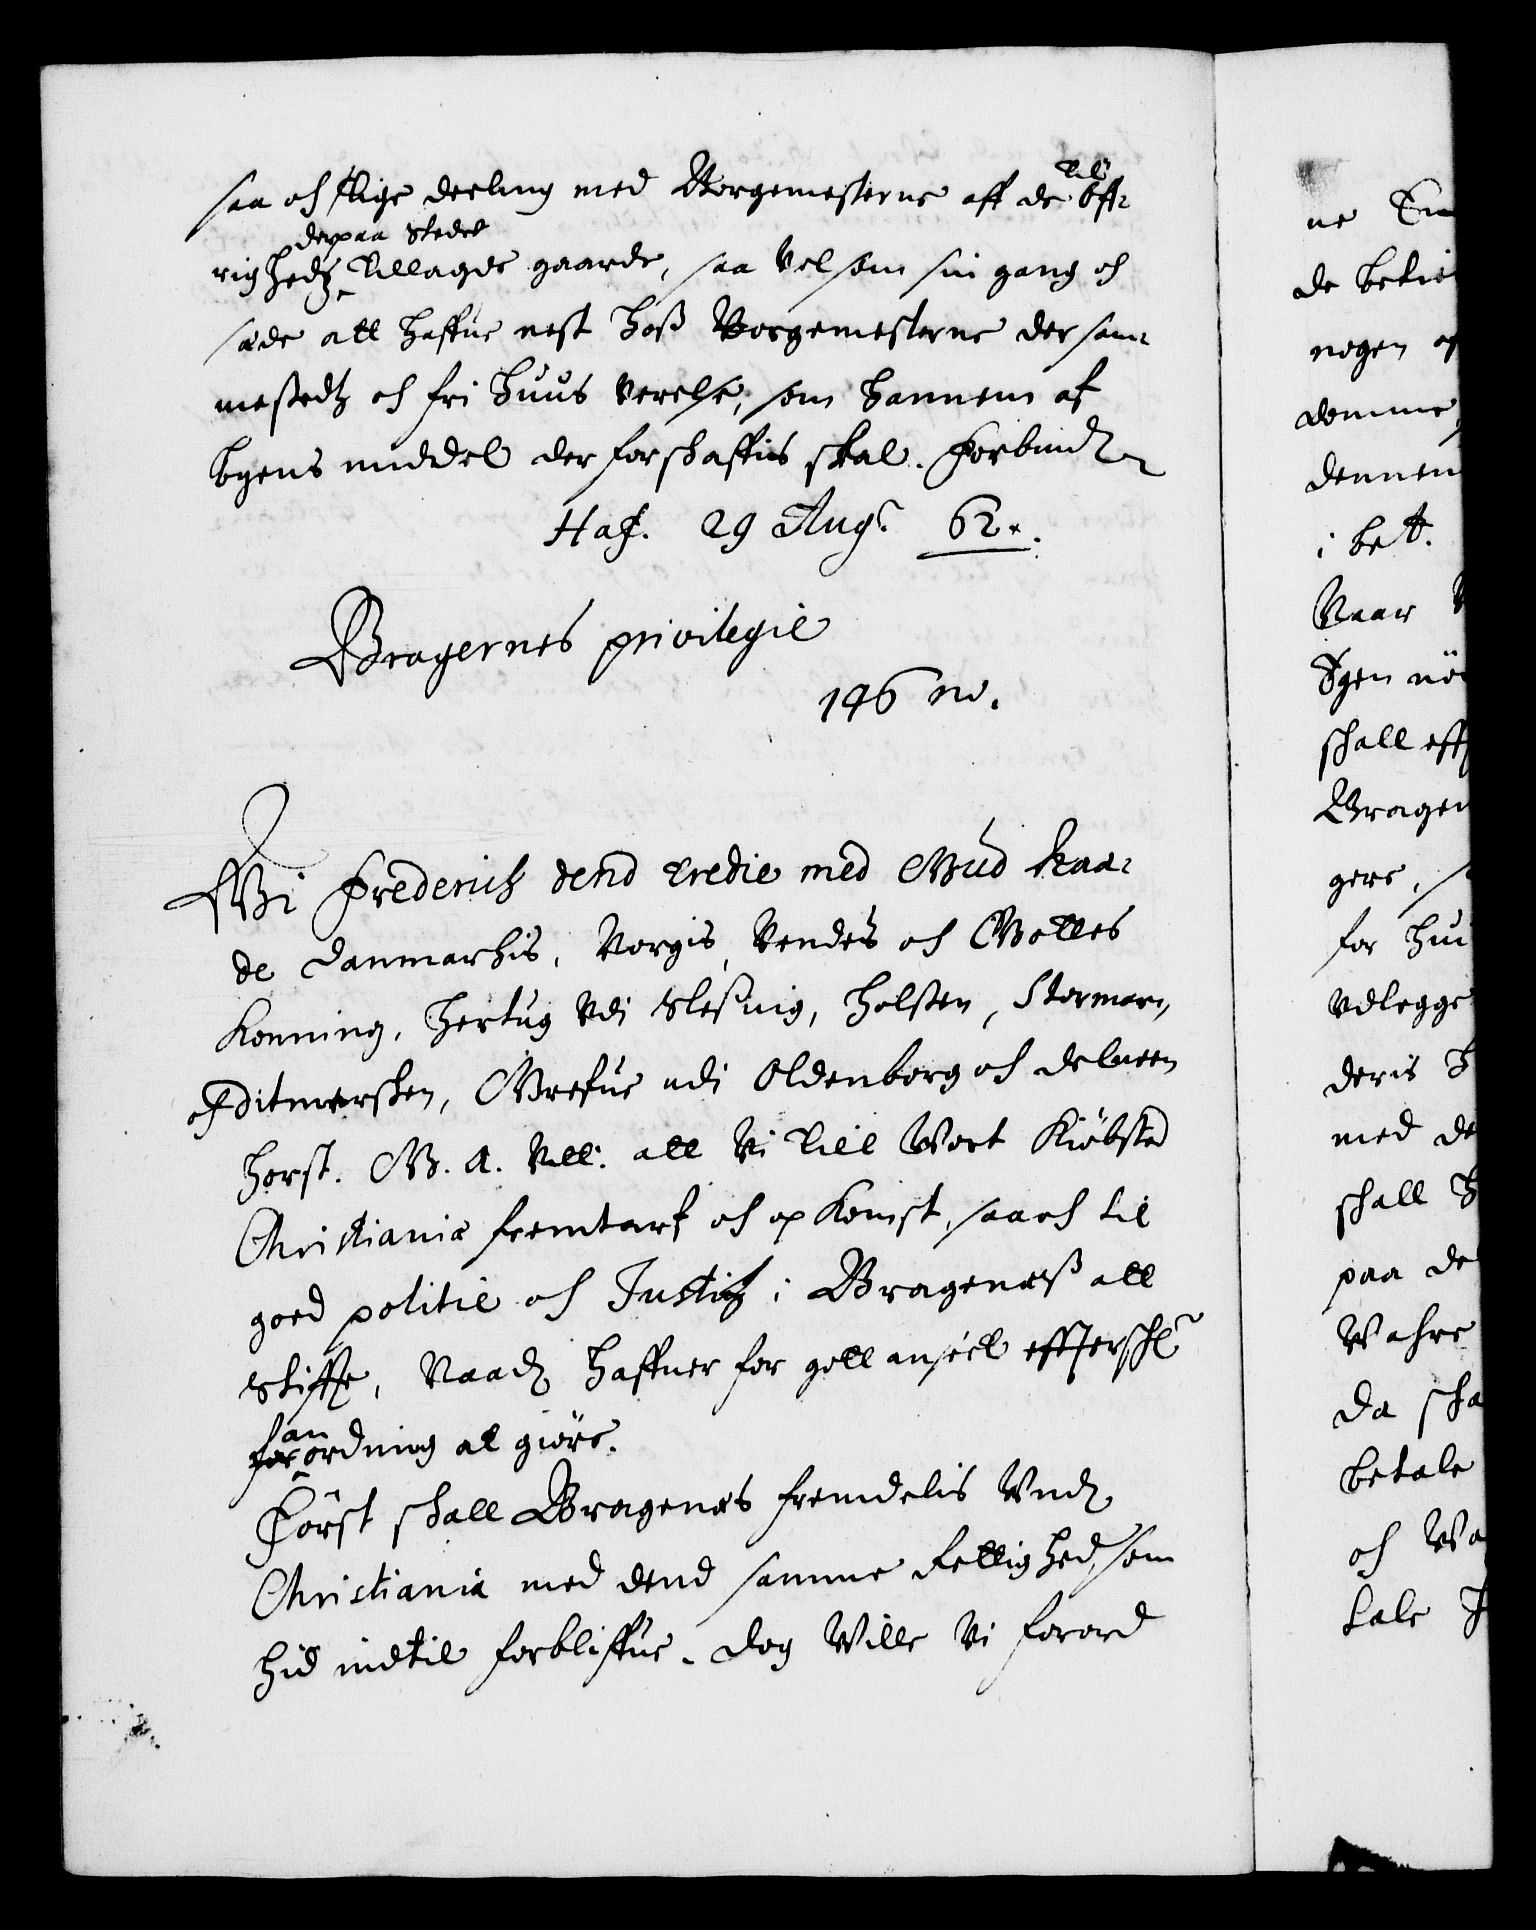 saa och slige deeling med Borgemesterne aff de till öff-
righedz derpaa Stedet tillagde gaarde, saa vel som sin gang och
sæde att haffue nest hoß Borgemesterne der sam-
mestedz och fri huus verelse, som hannem af
byens middel der forschaffis skal. Forbind
Haf. 29 Aug: 62.
Bragernes privilegie
146 no.
Wi Frederich dend tredie med Gud Naa-
de Danmarkis, Norgis, Vendes och Gottes
Konning, hertug vdi Slesuig, Holsten, Stormarn,
och Ditmersken, Grefue udi Oldenborg och Delmen
horst. G. A. Vitt: att Vi till Wort Kiöbsted
Christiania fremtarf och opkomst, saa och til
goed politie och Justitz i Bragenæß att
stiffte, Naad haffuer for gott anseet effterschr
anordning at giöre.
Först schall Bragenæs fremdelis Vnd
Christiania med dend samme rettighed, som
hid indtil forbliffue. Dog Wille Vi forord
ne
de betie
nogen
domme
dennem
i bet.
Naar
Igen
schall eff
Bragen
gere,
for hui
vdlegge
deris
med de
schall
paa de
Wahre
da scha
betale
och Wa
tale